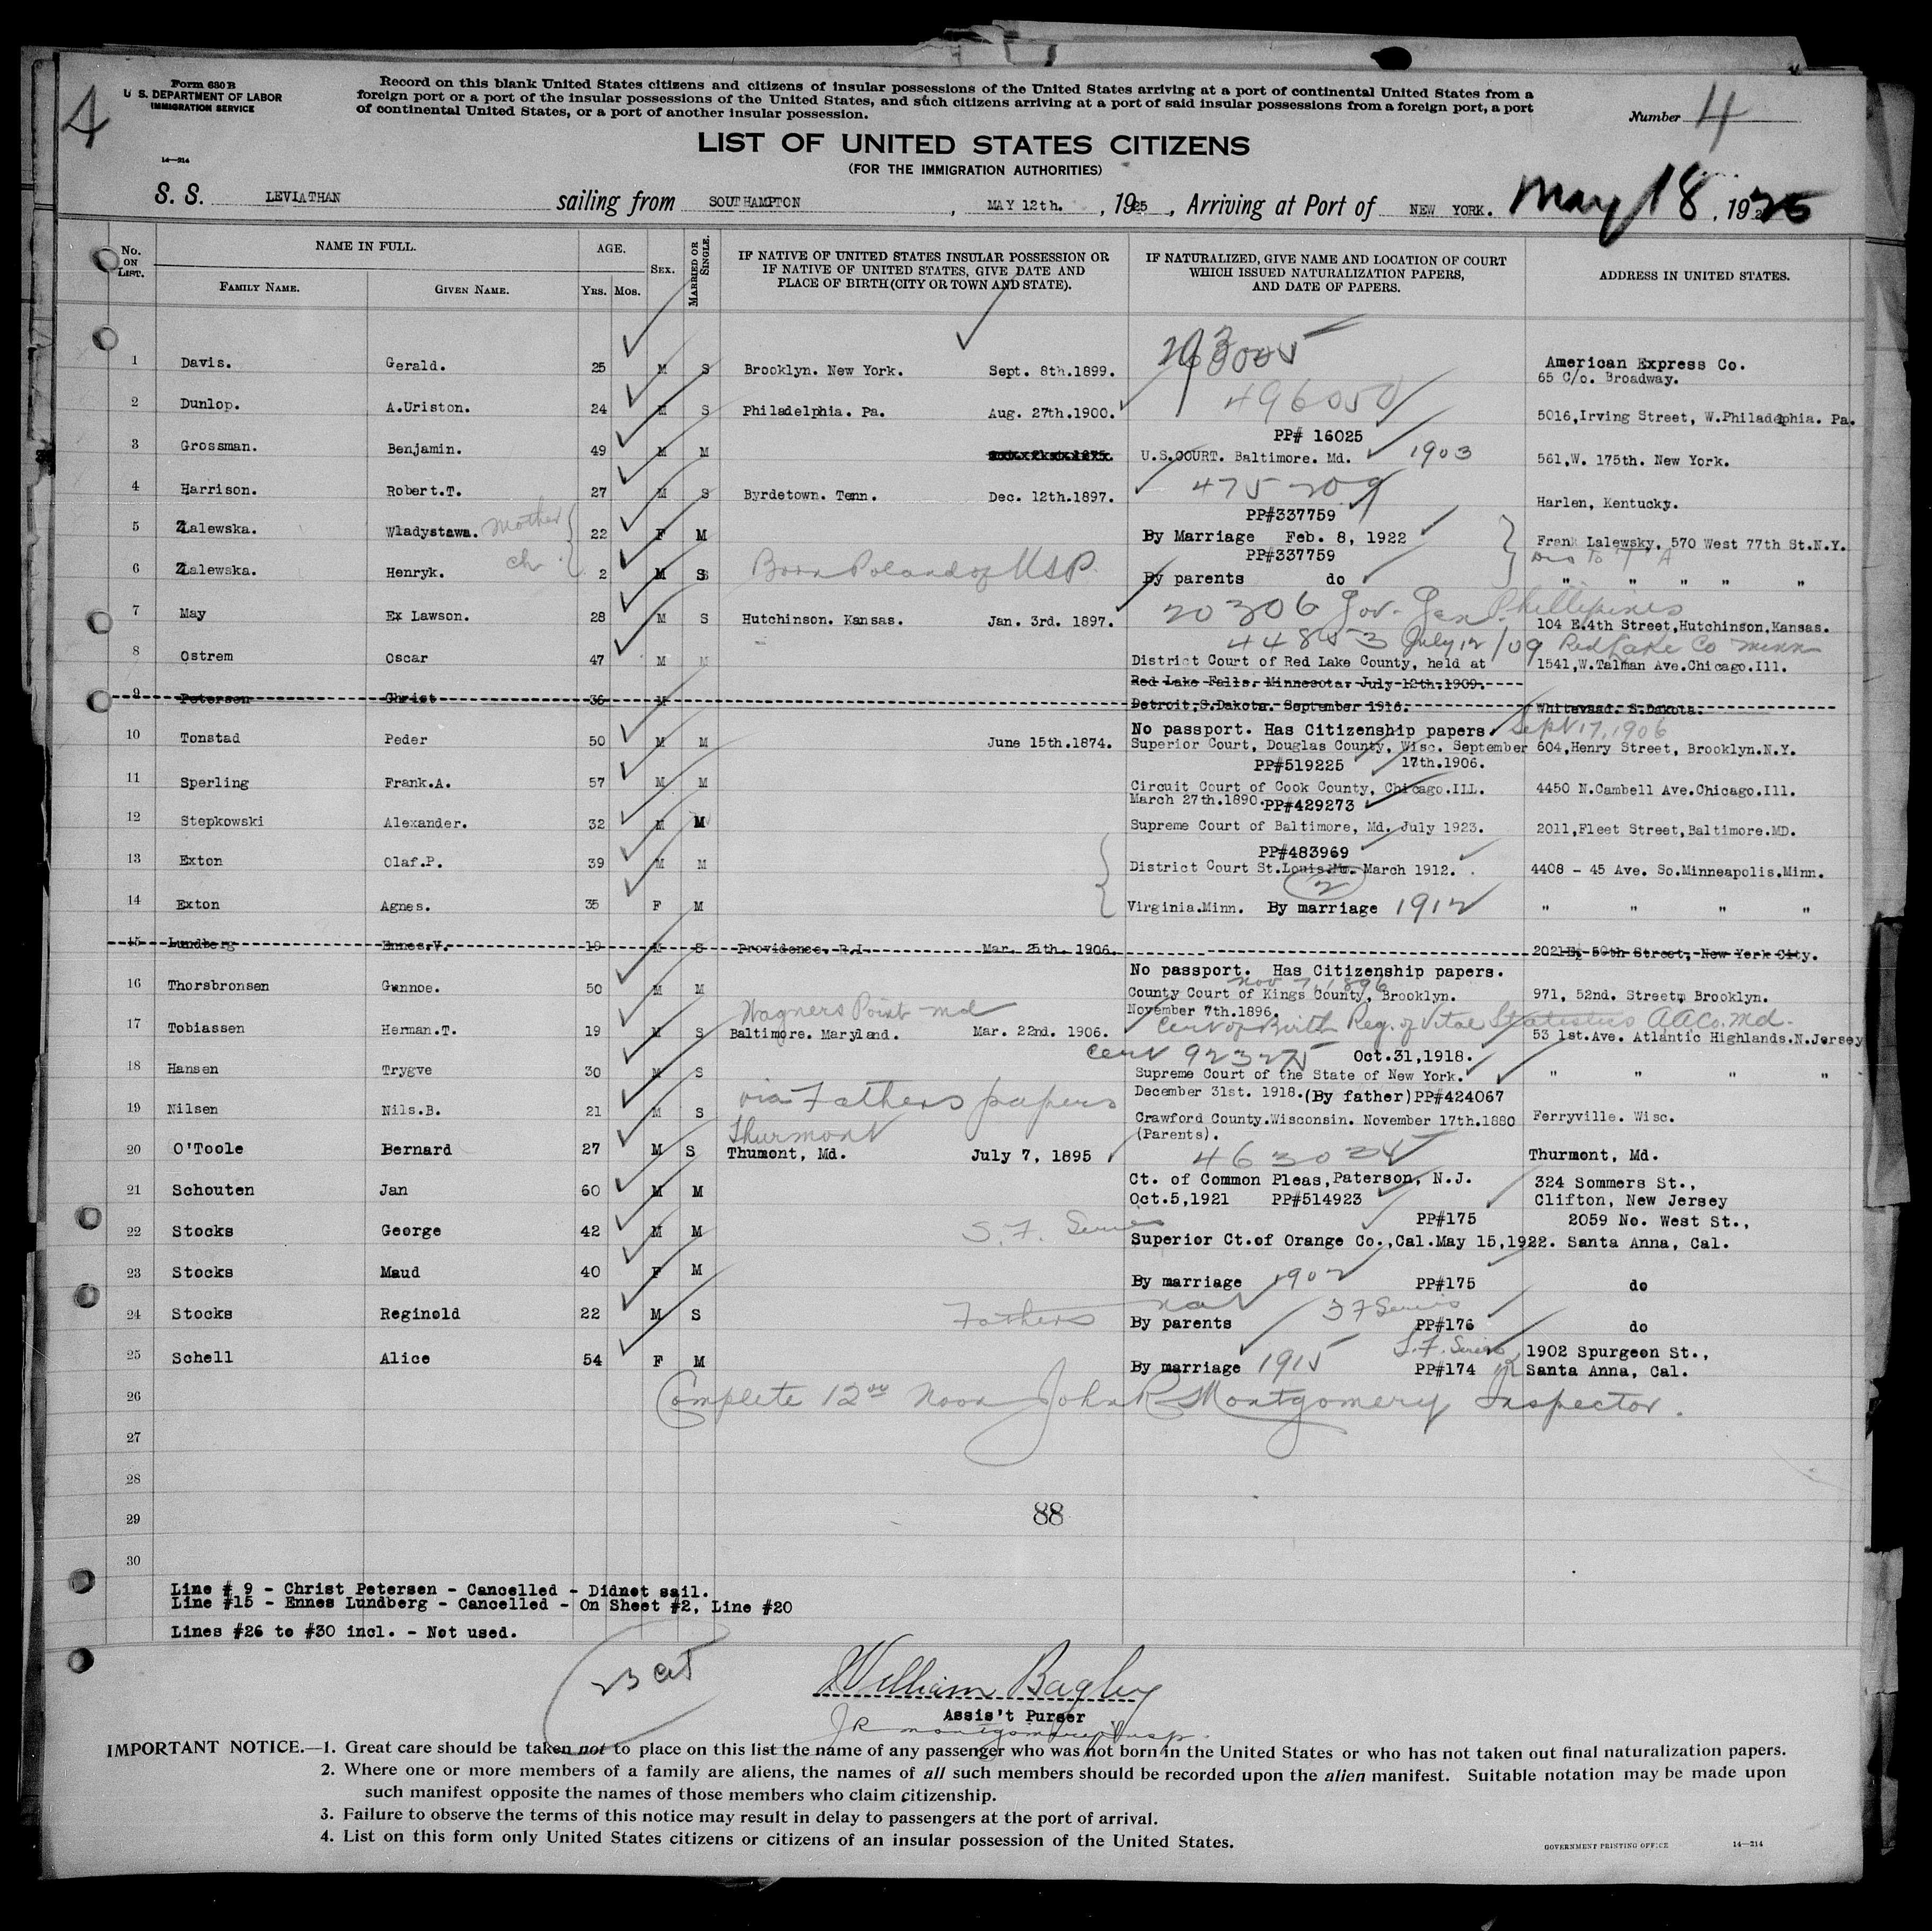 4
Form 630 B
U. S. DEPARTMENT OF LABOR
IMMIGRATION SERVICE
14—214
Record on this blank United States citizens and citizens of insular possessions of the United States arriving at a port of continental United States from a
foreign port or a port of the insular possessions of the United States, and such citizens arriving at a port of said insular possessions from a foreign port, a port
of continental United States, or a port of another insular possession.
Number 4
LIST OF UNITED STATES CITIZENS
(FOR THE IMMIGRATION AUTHORITIES)
S. S. LEVIATHAN sailing from SOUTHAMPTON, MAY 12th., 1925, Arriving at Port of NEW YORK. May 18, 1925
No. ON LIST. NAME IN FULL. FAMILY NAME. GIVEN NAME. AGE. YRS. MOS. SEX. MARRIED OR SINGLE. IF NATIVE OF UNITED STATES INSULAR POSSESSION OR IF NATIVE OF UNITED STATES, GIVE DATE AND PLACE OF BIRTH (CITY OR TOWN AND STATE). IF NATURALIZED, GIVE NAME AND LOCATION OF COURT WHICH ISSUED NATURALIZATION PAPERS, AND DATE OF PAPERS. ADDRESS IN UNITED STATES.
American Express Co.
1 Davis. Gerald. 25 M S Brooklyn. New York. Sept. 8th.1899. 65 C/o. Broadway.
496050
2 Dunlop. A.Uriston. 24 M S Philadelphia. Pa. Aug. 27th.1900. 5016,Irving Street, W.Philadelphia. Pa.
PP# 16025
3 Grossman. Benjamin. 49 M M U.S.COURT. Baltimore. Md. 1903 561,W. 175th. New York.
475209
4 Harrison. Robert.T. 27 M S Byrdetown. Tenn. Dec. 12th.1897. Harlen, Kentucky.
PP#337759
5 Zalewska. Wladystawa. Mother 22 F M By Marriage Feb. 8, 1922 Frank Lalewsky, 570 West 77th St.N.Y.
PP#337759
6 Zalewska. Henryk. ch. 2 M S Born Poland of USP. By parents do " " " " "
20306 Gov. Gen. Phillipines
7 May Ex Lawson. 28 M S Hutchinson. Kansas. Jan. 3rd. 1897. 104 E.4th Street,Hutchinson,Kansas.
44853 July 12/09 Red Lake Co Minn
8 Ostrem Oscar 47 M M District Court of Red Lake County, held at 1541,W.Talman Ave.Chicago.Ill.
Red Lake Falls. Minnesota. July 12th.1909.
9 Petersen Christ 36 M Detroit,S.Dakota. September 1916. Whitewaad. S.Dakota.
No passport. Has Citizenship papers. Sept 17, 1906
10 Tonstad Peder 50 M M June 15th.1874. Superior Court, Douglas County, Wisc. September 604,Henry Street, Brooklyn.N.Y.
PP#519225 17th.1906.
11 Sperling Frank.A. 57 M M Circuit Court of Cook County, Chicago.ILL. 4450 N.Cambell Ave.Chicago.Ill.
March 27th.1890. PP#429273
12 Stepkowski Alexander. 32 M M Supreme Court of Baltimore, Md. July 1923. 2011,Fleet Street,Baltimore.MD.
PP#483969
13 Exton Olaf.P. 39 M M District Court St.Louis.Mo. March 1912. 4408 - 45 Ave. So.Minneapolis.Minn.
2
14 Exton Agnes. 35 F M Virginia.Minn. By marriage 1912 " " " "
15 Lundberg Ennes.V. 19 M S Providence. R.I. Mar. 25th. 1906. 202 E. 50th Street, New York City.
No passport. Has Citizenship papers.
Nov 7, 1896
16 Thorsbronsen Gunnoe. 50 M M County Court of Kings County, Brooklyn. 971, 52nd. Street, Brooklyn.
November 7th.1896.
Wagners Point Md
Cert of Birth Reg. of Vital Statistics A A Co. Md.
17 Tobiassen Herman.T. 19 M S Baltimore. Maryland. Mar. 22nd. 1906. 53 1st.Ave. Atlantic Highlands.N.Jersey
Cert 923275 Oct.31,1918.
18 Hansen Trygve 30 M S Supreme Court of the State of New York. " " " "
December 31st. 1918. (By father)PP#424067
19 Nilsen Nils.B. 21 M S via Fathers papers Crawford County.Wisconsin. November 17th.1880 Ferryville. Wisc.
(Parents).
Thurmont
20 O'Toole Bernard 27 M S Thumont, Md. July 7, 1895 Thurmont, Md.
21 Schouten Jan 60 M M Ct. of Common Pleas,Paterson, N.J. 324 Sommers St.,
Oct.5,1921 PP#514923 Clifton, New Jersey
PP#175 2059 No. West St.,
22 Stocks George 42 M M S. F. Series Superior Ct.of Orange Co.,Cal.May 15,1922. Santa Anna, Cal.
23 Stocks Maud 40 F M By marriage 1902 PP#175 do
S F Series
24 Stocks Reginold 22 M S Fathers nat By parents PP#176 do
S. F. Series 1902 Spurgeon St.,
25 Schell Alice 54 F M By marriage 1915 PP#174 Santa Anna, Cal.
26 Complete 12 00 Noon John R Montgomery Inspector.
27
28
29 88
30
Line # 9 - Christ Petersen - Cancelled - Didnot sail.
Line #15 - Ennes Lundberg - Cancelled - On Sheet #2, Line #20
Lines #26 to #30 incl. - Not used.
23 cit
William Bagley
Assis't Purser
J R Montgomery Insp.
IMPORTANT NOTICE.—1. Great care should be taken not to place on this list the name of any passenger who was not born in the United States or who has not taken out final naturalization papers.
2. Where one or more members of a family are aliens, the names of all such members should be recorded upon the alien manifest. Suitable notation may be made upon
such manifest opposite the names of those members who claim citizenship.
3. Failure to observe the terms of this notice may result in delay to passengers at the port of arrival.
4. List on this form only United States citizens or citizens of an insular possession of the United States.
GOVERNMENT PRINTING OFFICE 14—214